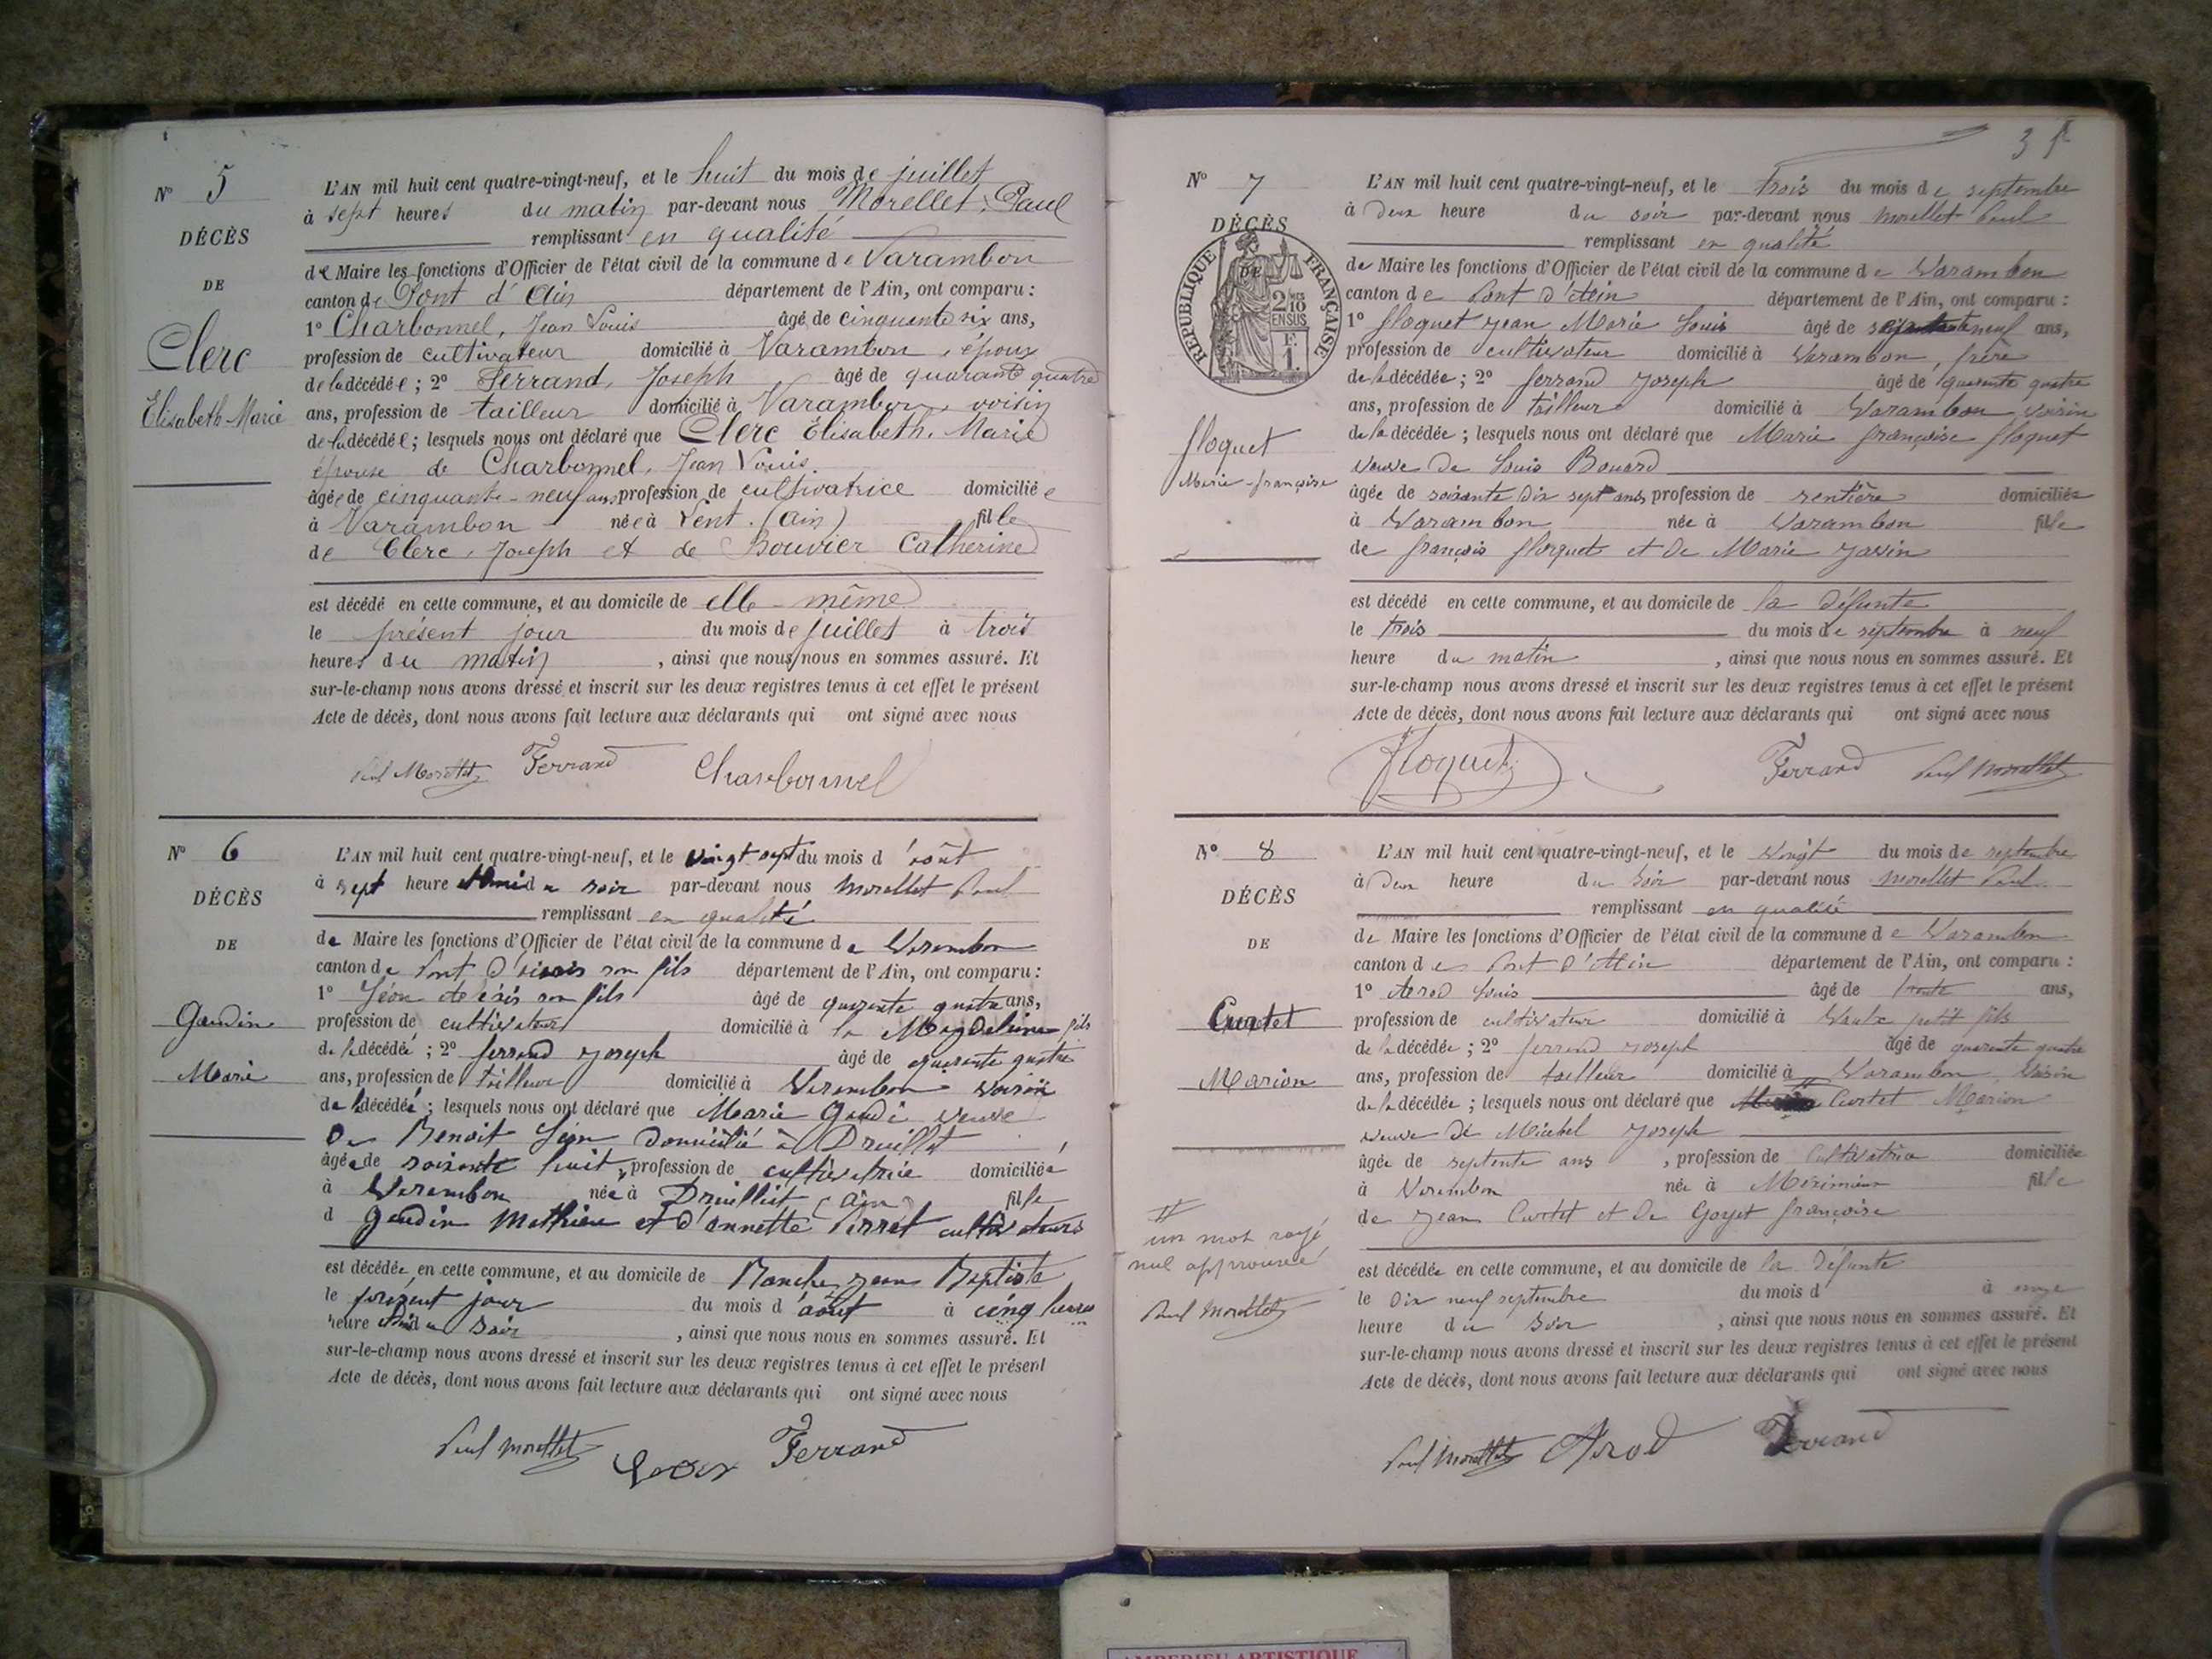 N° 5
DÉCÈS
DE
Clerc
Élisabeth-Marie
L'AN mil huit cent quatre-vingt-neuf, et le huit du mois de juillet
à sept heures du matin par-devant nous Morellet, Paul
remplissant en qualité
de Maire les fonctions d'Officier de l'état civil de la commune de Varambon
canton de Pont d'Ain département de l'Ain, ont comparu :
1° Charbonnel, Jean Louis âgé de cinquante six ans,
profession de cultivateur domicilié à Varambon, époux
de la décédée ; 2° Ferrand, Joseph âgé de quarante quatre
ans, profession de tailleur domicilié à Varambon, voisin
de la décédée ; lesquels nous ont déclaré que Clerc Élisabeth. Marie
épouse de Charbonnel, Jean Louis.
âgée de cinquante-neuf ans profession de cultivatrice domiciliée
à Varambon née à Lent. (Ain) fille
de Clerc, Joseph et de Bouvier Catherine
est décédé en cette commune, et au domicile de elle-même
le présent jour du mois de juillet à trois
heures du matin, ainsi que nous nous en sommes assuré. Et
sur-le-champ nous avons dressé et inscrit sur les deux registres tenus à cet effet le présent
Acte de décès, dont nous avons fait lecture aux déclarants qui ont signé avec nous
Paul Morellet Ferrand Charbonnel
N° 6
DÉCÈS
DE
Gaudin
Marie
L'AN mil huit cent quatre-vingt-neuf, et le vingt sept du mois d'août
à sept heure et demi du soir par-devant nous Morellet Paul
remplissant en qualité
de Maire les fonctions d'Officier de l'état civil de la commune de Varambon
canton de Pont d' son fils département de l'Ain, ont comparu :
1° Léon son fils âgé de quarante quatre ans,
profession de cultivateur domicilié à la Magdeleine fils
de la décédée ; 2° ferrand Joseph âgé de quarante quatre
ans, profession de tailleur domicilié à Varambon voisin
de la décédée ; lesquels nous ont déclaré que Marie Gaudi veuve
De Benoit Léon domicilié à Druillat
âgée de soixante huit, profession de cultivatrice domiciliée
à Varambon née à Druillat (Ain) fille
d Gaudin Mathieu et d'annette Perret cultivateurs
est décédée en cette commune, et au domicile de Blanche Jean Baptiste
le présent jour du mois d'août à cinq heures
heure du soir, ainsi que nous nous en sommes assuré. Et
sur-le-champ nous avons dressé et inscrit sur les deux registres tenus à cet effet le présent
Acte de décès, dont nous avons fait lecture aux déclarants qui ont signé avec nous
Paul Morellet Ferrand
3
N° 7
DÉCÈS
DE
RÉPUBLIQUE FRANÇAISE
2/10 EN SUS
F. 1.
floquet
Marie-françoise
L'AN mil huit cent quatre-vingt-neuf, et le trois du mois de septembre
à Deux heure du soir par-devant nous Morellet Paul
remplissant en qualité
de Maire les fonctions d'Officier de l'état civil de la commune de Varambon
canton de Pont d'Ain département de l'Ain, ont comparu :
1° floquet Jean Marie Louis âgé de neuf ans,
profession de cultivateur domicilié à Varambon, frère
de la décédée ; 2° ferrand Joseph âgé de quarante quatre
ans, profession de tailleur domicilié à Varambon voisin
de la décédée ; lesquels nous ont déclaré que Marie françoise floquet
veuve de Louis Bouard
âgée de soixante Dix sept ans, profession de rentière domiciliée
à Varambon née à Varambon fille
de françois floquet et de Marie
est décédé en cette commune, et au domicile de la défunte
le trois du mois de septembre à neuf
heure du matin, ainsi que nous nous en sommes assuré. Et
sur-le-champ nous avons dressé et inscrit sur les deux registres tenus à cet effet le présent
Acte de décès, dont nous avons fait lecture aux déclarants qui ont signé avec nous
floquet Ferrand Paul Morellet
N° 8
DÉCÈS
DE
Curtet
Marion
L'AN mil huit cent quatre-vingt-neuf, et le vingt du mois de septembre
à Deux heure du soir par-devant nous Morellet Paul
remplissant en qualité
de Maire les fonctions d'Officier de l'état civil de la commune de Varambon
canton de Pont d'Ain département de l'Ain, ont comparu :
1° Arod Louis âgé de trente ans,
profession de cultivateur domicilié à Vaulx petit fils
de la décédée ; 2° ferrand Joseph âgé de quarante quatre
ans, profession de tailleur domicilié à Varambon, voisin
de la décédée ; lesquels nous ont déclaré que Curtet Marion
veuve de Michel Joseph
âgée de septente ans, profession de cultivatrice domiciliée
à Varambon née à fille
de Jean Curtet et de Goyet françoise
est décédée en cette commune, et au domicile de la défunte
le Dix neuf septembre du mois d à onze
heure du soir, ainsi que nous nous en sommes assuré. Et
sur-le-champ nous avons dressé et inscrit sur les deux registres tenus à cet effet le présent
Acte de décès, dont nous avons fait lecture aux déclarants qui ont signé avec nous
un mot rayé
nul approuvé
Paul Morellet
Paul Morellet Arod Ferrand
AMBERIEU ARTISTIQUE